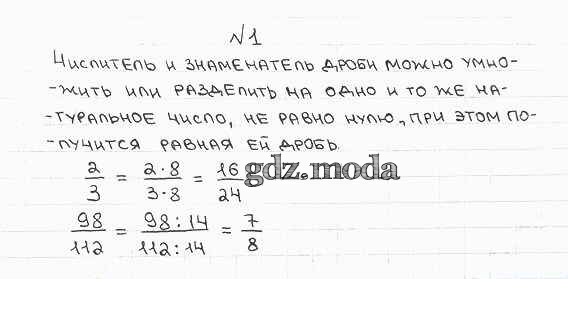 №1
Числитель и знаменатель дроби можно умно-
-жить или разделить на одно и то же на-
-туральное число, не равно нулю, при этом по-
-лучится равная ей дробь.
2/3 = 2·8/3·8 = 16/24 gdz.moda
98/112 = 98:14/112:14 = 7/8